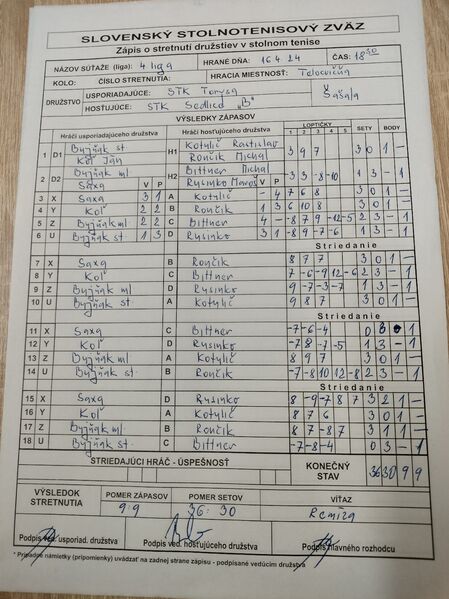 SLOVENSKÝ STOLNOTENISOVÝ ZVÄZ
Zápis o stretnutí družstiev v stolnom tenise
NÁZOV SÚŤAŽE (liga): 4 liga HRANÉ DŇA: 16.4.24 ČAS: 18 30
KOLO: ČÍSLO STRETNUTIA: HRACIA MIESTNOSŤ: Telocvičňa
DRUŽSTVO USPORIADAJÚCE: STK Torysa
HOSŤUJÚCE: STK Sedlice "B"
VÝSLEDKY ZÁPASOV
Hráči usporiadajúceho družstva Hráči hosťujúceho družstva LOPTIČKY 1 2 3 4 5 SETY BODY
1 D1 Byjňak st Koľ Ján H1 Kotylič Rastislav Rončík Michal 3 9 7 3 0 1 -
2 D2 Byjňak ml Saxa H2 Bittner Michal Rusinko 1 3 - 1
V P V P
3 X Saxa 3 1 A Kotylič 4 7 6 8 3 0 1 -
4 Y Koľ 2 2 B Rončík 1 3 6 10 8 3 0 1 -
5 Z Byjňak ml 2 2 C Bittner 4 - -8 7 9 -12 -5 2 3 - 1
6 U Byjňak st 1 3 D Rusinko 3 1 -8 -7 -6 0 3 - 1
Striedanie
7 X Saxa B Rončík 8 7 7 3 0 1 -
8 Y Koľ C Bittner 7 -6 -9 12 -6 2 3 - 1
9 Z Byjňak ml D Rusinko 9 -7 -3 -7 1 3 - 1
10 U Byjňak st A Kotylič 9 8 7 3 0 1 -
Striedanie
11 X Saxa C Bittner -7 -6 -4 0 3 - 1
12 Y Koľ D Rusinko -7 8 -7 -5 1 3 - 1
13 Z Byjňak ml A Kotylič 8 9 7 3 0 1 -
14 U Byjňak st B Rončík -7 -8 10 12 -8 2 3 - 1
Striedanie
15 X Saxa D Rusinko 8 -9 -7 8 7 3 2 1 -
16 Y Koľ A Kotylič 8 7 6 3 0 1 -
17 Z Byjňak ml B Rončík 8 7 -8 7 3 1 1 -
18 U Byjňak st. C Bittner -7 -8 -4 0 3 - 1
STRIEDAJÚCI HRÁČ - ÚSPEŠNOSŤ KONEČNÝ STAV 36 30 9 9
VÝSLEDOK STRETNUTIA POMER ZÁPASOV POMER SETOV VÍŤAZ
9:9 36:30 Remíza
Podpis ved. usporiad. družstva Podpis ved. hosťujúceho družstva Podpis hlavného rozhodcu
* Prípadné námietky (pripomienky) uvádzať na zadnej strane zápisu - podpísané vedúcim družstva